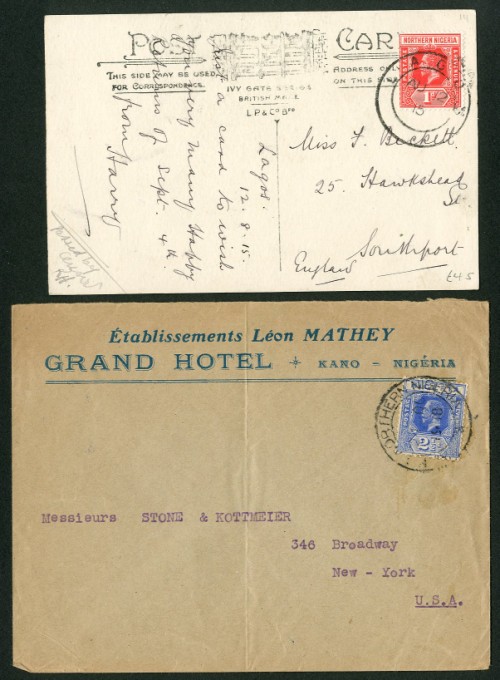 POST CARD
THIS SIDE MAY BE USED
FOR CORRESPONDENCE.
ADDRESS ONLY
ON THIS
IVY GATE SERIES
BRITISH MAKE
L.P & Co Bro
NORTHERN NIGERIA
1d
LAGOS
12
15
Lagos.
12.8.15.
Just a card to wish
you very many Happy
Returns of Sept. 4th.
from Harry
Miss F. Beckett
25. Hawkshead
St
Southport
England
£45
Établissements Léon MATHEY
GRAND HOTEL + KANO - NIGÉRIA
NORTHERN NIGERIA
2½d
Messieurs STONE & KOTTMEIER
346 Broadway
New - York
U.S.A.